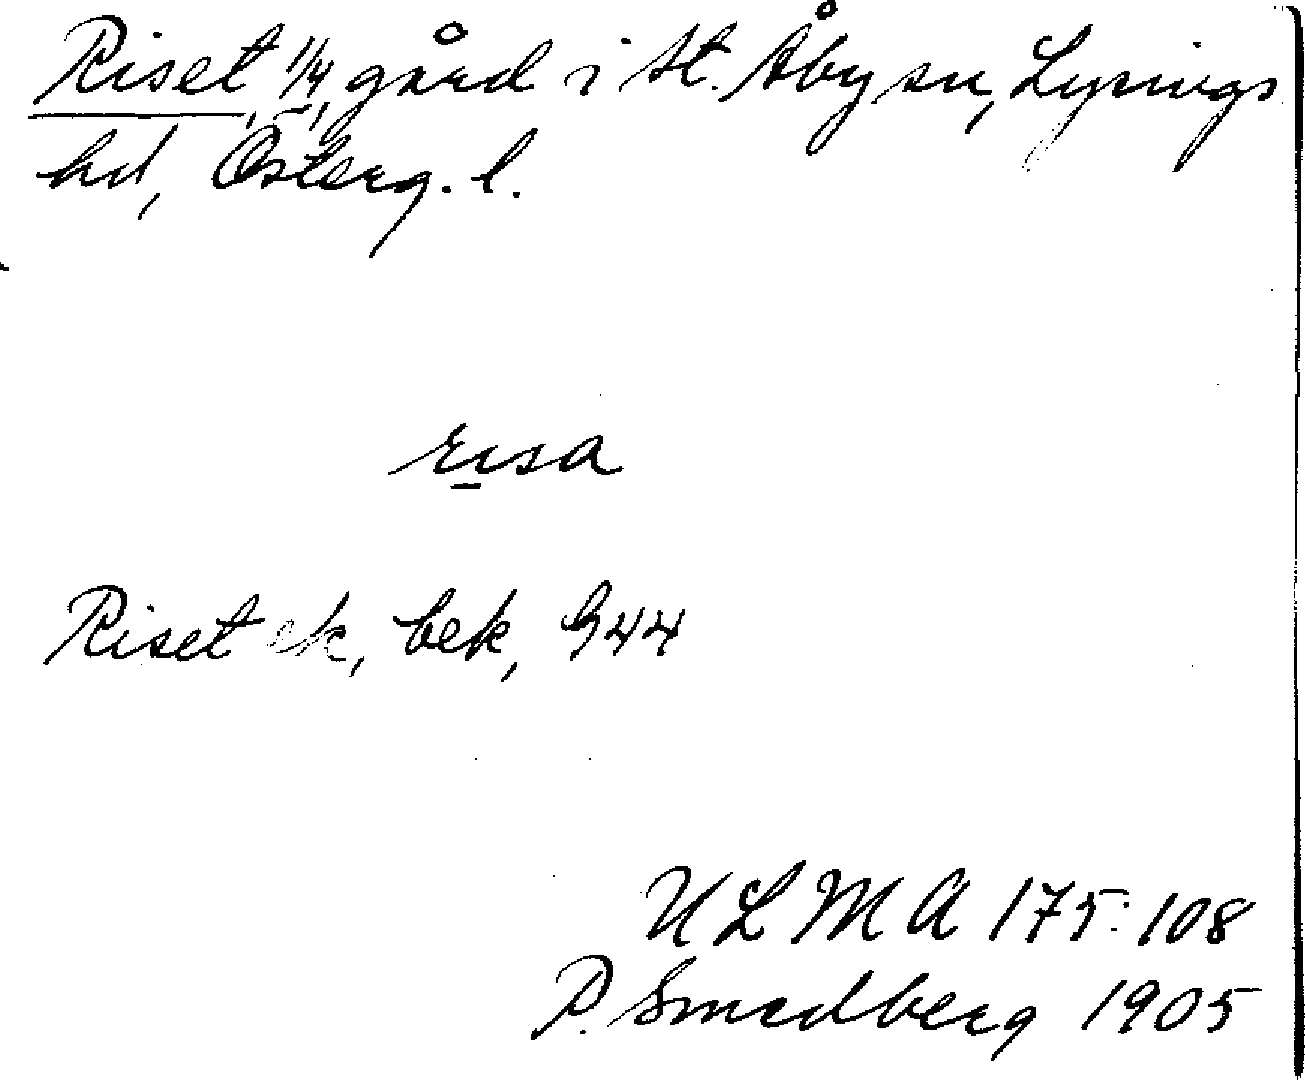 Riset, 1/4, gård i St. Åby sn, Lysings
hd, Österg. l.
risa
Riset ek, bek, G44
ULMA 175:108
P. Smedberg 1905